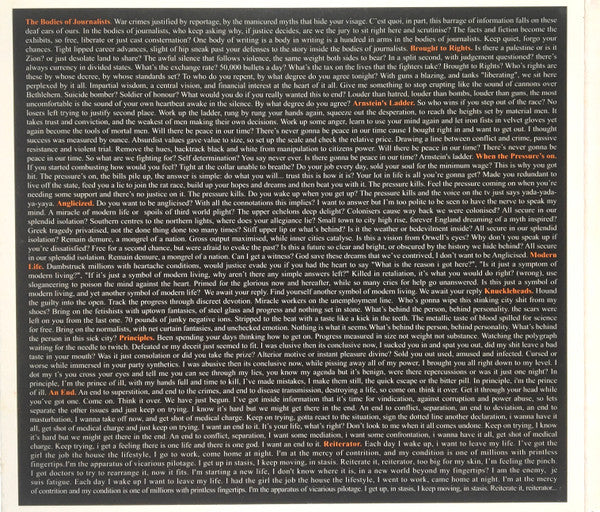 The Bodies of Journalists. War crimes justified by reportage, by the manicured myths that hide your visage. C'est quoi, in part, this barrage of information falls on these
deaf ears of ours. In the bodies of journalists, who keep asking why, if justice decides, are we the jury to sit right here and scrutinise? The facts and fiction become the
exhibits, so free, liberate or just cast consternation? One body of writing is a body in writing is a hundred in arms in the bodies of journalists. Keep quiet, forgo your
chances. Tight lipped career advances, slight of hip sneak past your defenses to the story inside the bodies of journalists. Brought to Rights. Is there a palestine or is it
Zion? or just desolate land to share? The awful silence that follows violence, the same weight both sides to bear? In a split second, with judgement questioned? there's
always currency in divided states. What's the exchange rate? 50,000 bullets a day? What's the tax on the lives that the fighters take? Brought to Rights? Who's rights are
these by whose decree, by whose standards set? To who do you repent, by what degree do you agree tonight? With guns a blazing, and tanks "liberating", we sit here
perplexed by it all. Impartial wisdom, a central vision, and financial interest at the heart of it all. Give me something to stop erupting like the sound of cannons over
Bethlehem. Suicide bomber? Soldier of honour? What would you do if you really wanted this to end? Louder than hatred, louder than bombs, louder than guns, the most
uncomfortable is the sound of your own heartbeat awake in the silence. By what degree do you agree? Arnstein's Ladder. So who wins if you step out of the race? No
losers left trying to justify second place. Work up the ladder, rung by rung your hands again, squeeze out the desperation, to reach the heights set by material men. It
takes trust and conviction, and the weakest of men making their own decisions. Work up some anger, learn to use your mind again and let iron fists in velvet gloves yet
again become the tools of mortal men. Will there be peace in our time? There's never gonna be peace in our time cause I bought right in and want to get out. I thought
success was measured by ounce. Absurdist values gave value to size, so set up the scale and check the relative price. Drawing a line between conflict and crime, passive
resistance and violent trial. Remove the hues, backtrack black and white from manipulation to citizens power. Will there be peace in our time? There's never gonna be
peace in our time. So what are we fighting for? Self determination? You say never ever. Is there gonna be peace in our time? Arnstein's ladder. When the Pressure's on.
If you started combusting how would you feel? Tight at the collar unable to breathe? Do your job every day, sold your soul for the minimum wage? This is why you got
hit. The pressure's on, the bills pile up, the answer is simple: do what you will... trust this is how it is? Your lot in life is all you're gonna get? Made you redundant to
live off the state, feed you a lie to join the rat race, build up your hopes and dreams and then beat you with it. The pressure kills. Feel the pressure coming on when you're
needing some support and there's no justice on it. The pressure kills. Do you wake up when you get up? The pressure kills and the voice on the tv just says yada-yada-
ya-yaya. Anglicized. Do you want to be anglicised? With all the connotations this implies? I want to answer but I'm too polite to be seen to have the nerve to speak my
mind. A miracle of modern life or spoils of third world plight? The upper echelons deep delight? Colonisers cause way back we were colonised? All secure in our
splendid isolation? Southern centres to the northern lights, where does your allegiance lie? Small town to city high rise, forever England dreaming of a myth inspired?
Greek tragedy privatised, not the done thing done too many times? Stiff upper lip or what's behind? Is it the weather or bedevilment inside? All secure in our splendid
isolation? Remain demure, a mongrel of a nation. Gross output maximised, while inner cities catalyse. Is this a vision from Orwell's eyes? Why don't you speak up if
you're dissatisfied? Free for a second chance, but were afraid to evoke the past? Is this a future so clear and bright, or obscured by the history we hide behind? All secure
in our splendid isolation. Remain demure, a mongrel of a nation. Can I get a witness? God save these dreams that we've contrived, I don't want to be Anglicised. Modern
Life. Dumbstruck millions with heartache conditions, would justice evade you if you had the heart to say "What is the reason i got here?", "Is it just a symptom of
modern living?", "If it's just a symbol of modern living, why aren't there any simple answers left?" Killed in retaliation, it's what you would do right? (wrong), use
sloganeering to poison the mind against the heart. Primed for the glorious now and hereafter, while so many cries for help go unanswered. Is this just a symbol of
modern living, and yet another symbol of modern life? We await your reply. Find yourself another symbol of modern living. We await your reply Knuckleheads. Hound
the guilty into the open. Track the progress through discreet devotion. Miracle workers on the unemployment line. Who's gonna wipe this stinking city shit from my
shoes? Bring on the fetishists with uptown fantasies, of steel glass and progress and nothing set in stone. What's behind the person, behind personality. the scars were
left on you from the last one. 70 pounds of junky negative ions. Stripped to the beat with a taste like a kick in the teeth. The metallic taste of blood spilled for science
for free. Bring on the normalists, with net curtain fantasies, and unchecked emotion. Nothing is what it seems. What's behind the person, behind personality. What's behind
the person in this sick city? Principles. Been spending your days thinking how to get on. Progress measured in size not weight not substance. Watching the polygraph
waiting for the needle to twitch. Defeated or my deceit just seemed to fit. I was elusive then its conclusive now, I sucked you in and spat you out, did my shit leave a bad
taste in your mouth? Was it just consolation or did you take the prize? Alterior motive or instant pleasure divine? Sold you out used, amused and infected. Cursed or
worse while immersed in your party synthetics. I was abusive then its conclusive now, while pissing away all of my power, I brought you all right down to my level. I
dot my t's you cross your eyes and tell me you can see through my lies, you know my agenda but it's benign, were there repercussions or was it just one night? In
principle, I'm the prince of ill, with my hands full and time to kill, I've made mistakes, I make them still, the quick escape or the bitter pill. In principle, i'm the prince
of ill. An End. An end to superstition, and end to the crimes, and end to disease transmission, destroying a life, so come on. think it over. Get it through your head while
you've got one. Come on. Think it over. We have just begun. I've got inside information that it's time for vindication, against corruption and power abuse, so lets
separate the other issues and just keep on trying. I know it's hard but we might get there in the end. An end to conflict, separation, an end to deviation, an end to
masturbation, I wanna take off now, and get shot of medical charge. Keep on trying. gotta react to the situation, sign the dotted line another declaration, i wanna have it
all, get shot of medical charge and just keep on trying. I want an end to it. It's your life, what's right? Don't look to me when it all comes undone. Keep on trying, I know
it's hard but we might get there in the end. An end to conflict, separation, I want some mediation, i want some confrontation, i wanna have it all, get shot of medical
charge. Keep trying, i get a feeling there is one life and there is one god. I want an end to it. Reiterator. Each day I wake up, i want to leave my life. I've got the
girl the job the house the lifestyle, I go to work, come home at night. I'm at the mercy of contrition, and my condition is one of millions with printless
fingertips.I'm the apparatus of vicarious pilotage. I get up in stasis, I keep moving, in stasis. Reiterate it, reiterator, too big for my skin, I'm feeling the pinch.
I got doctors to try to rearrange it, now it fits. I'm starting a new life, I don't know where it is, in a new world beyond my fingers? I am the enemy, je
suis fatigue. Each day I wake up I want to leave my life. I had the girl the job the house the lifestyle, I went to work, came home at night. I'm at the mercy
of contrition and my condition is one of millions with printless fingertips. I'm the apparatus of vicarious pilotage. I get up, in stasis, I keep moving, in stasis. Reiterate it, reiterator...